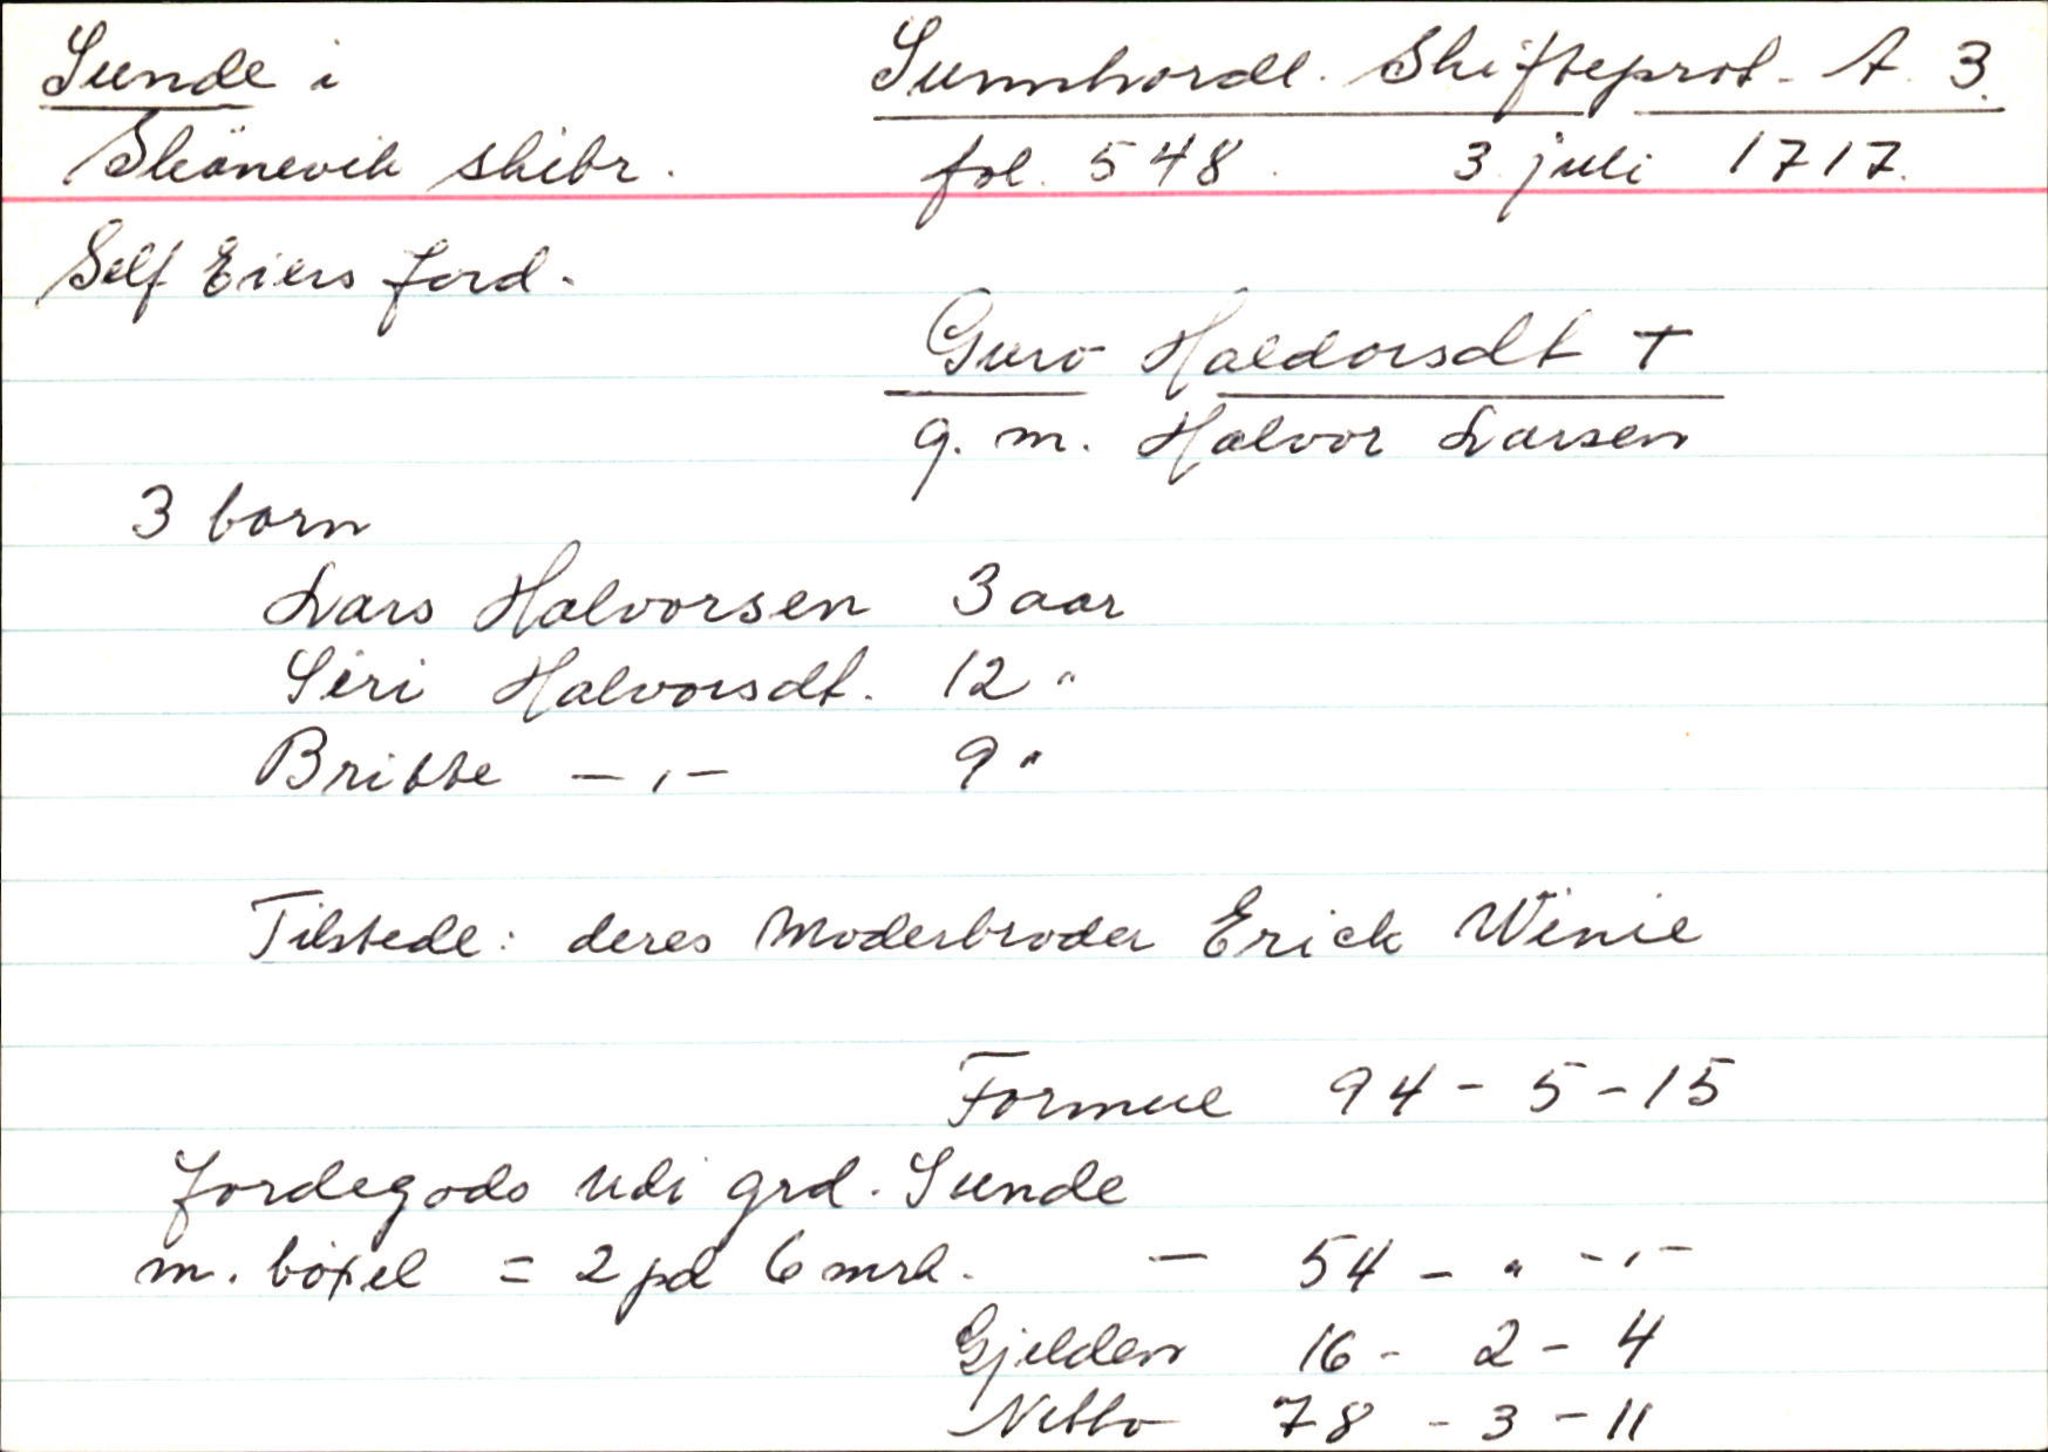 Sunde i
Skånevik skibr.
Sunnhordl. Skifteprot. A. 3.
fol. 548. 3 juli 1717.
Self Eiers Jord.
Guro Haldorsdt +
g. m. Halvor Larsen
3 born
Lars Halvorsen 3 aar
Siri Halvorsdt. 12 "
Britte -,- 9 "
Tilstede: deres Moderbroder Erick Winie
Formue 94 - 5 - 15
Jordegods udi grd. Sunde
m. böxel = 2 pd 6 mrk. - 54 - " -,-
Gjelden 16 - 2 - 4
Netto 78 - 3 - 11